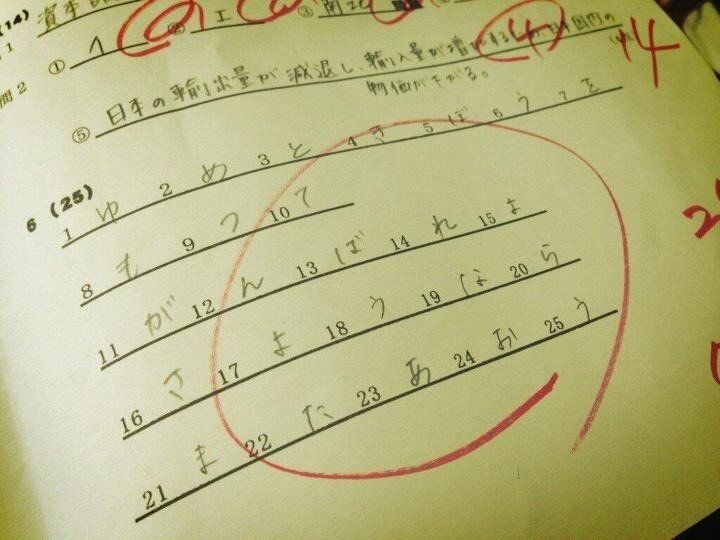 (14)
資本
① イ ② エ ③ 南北
問2 4
⑤ 日本の輸出量が減退し、輸入量が増加するため、日本国内の
物価が下がる。
6 (25)
1 ゆ 2 め 3 と 4 き 5 ぼ 6 う 7 を
8 も 9 つ 10 て
11 が 12 ん 13 ば 14 れ 15 よ
16 さ 17 よ 18 う 19 な 20 ら
21 ま 22 た 23 あ 24 お 25 う